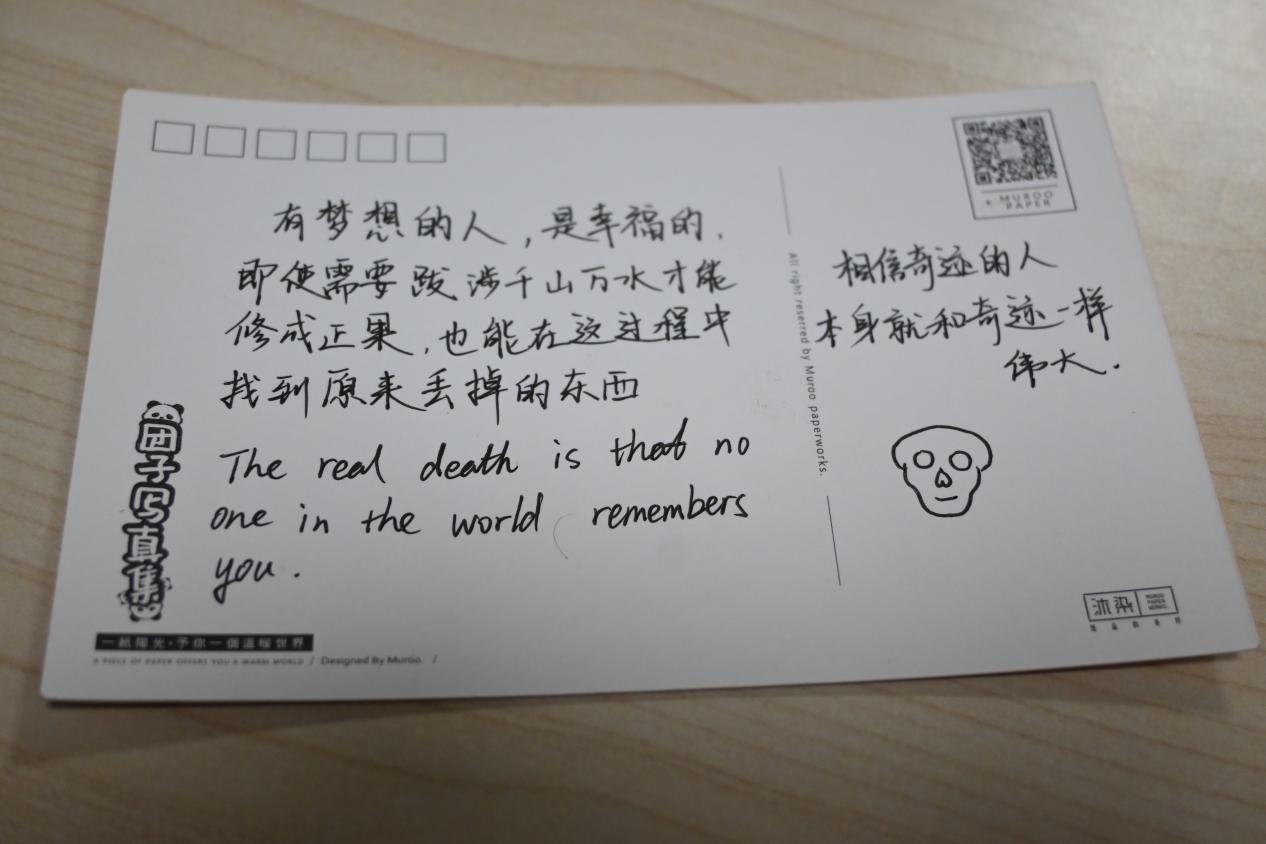 有梦想的人，是幸福的．
即使需要跋涉千山万水才能
修成正果，也能在这过程中
找到原来丢掉的东西
The real death is that no
one in the world remembers
you.
团子写真集
一纸陽光·予你一個溫暖世界
A PIECE OF PAPER OFFERS YOU A WARM WORLD / Designed By Muroo. /
All right reserred by Muroo paperworks.
+ MUROO
PAPER
相信奇迹的人
本身就和奇迹一样
伟大.
沐染
MUROO
PAPER
WORKS.